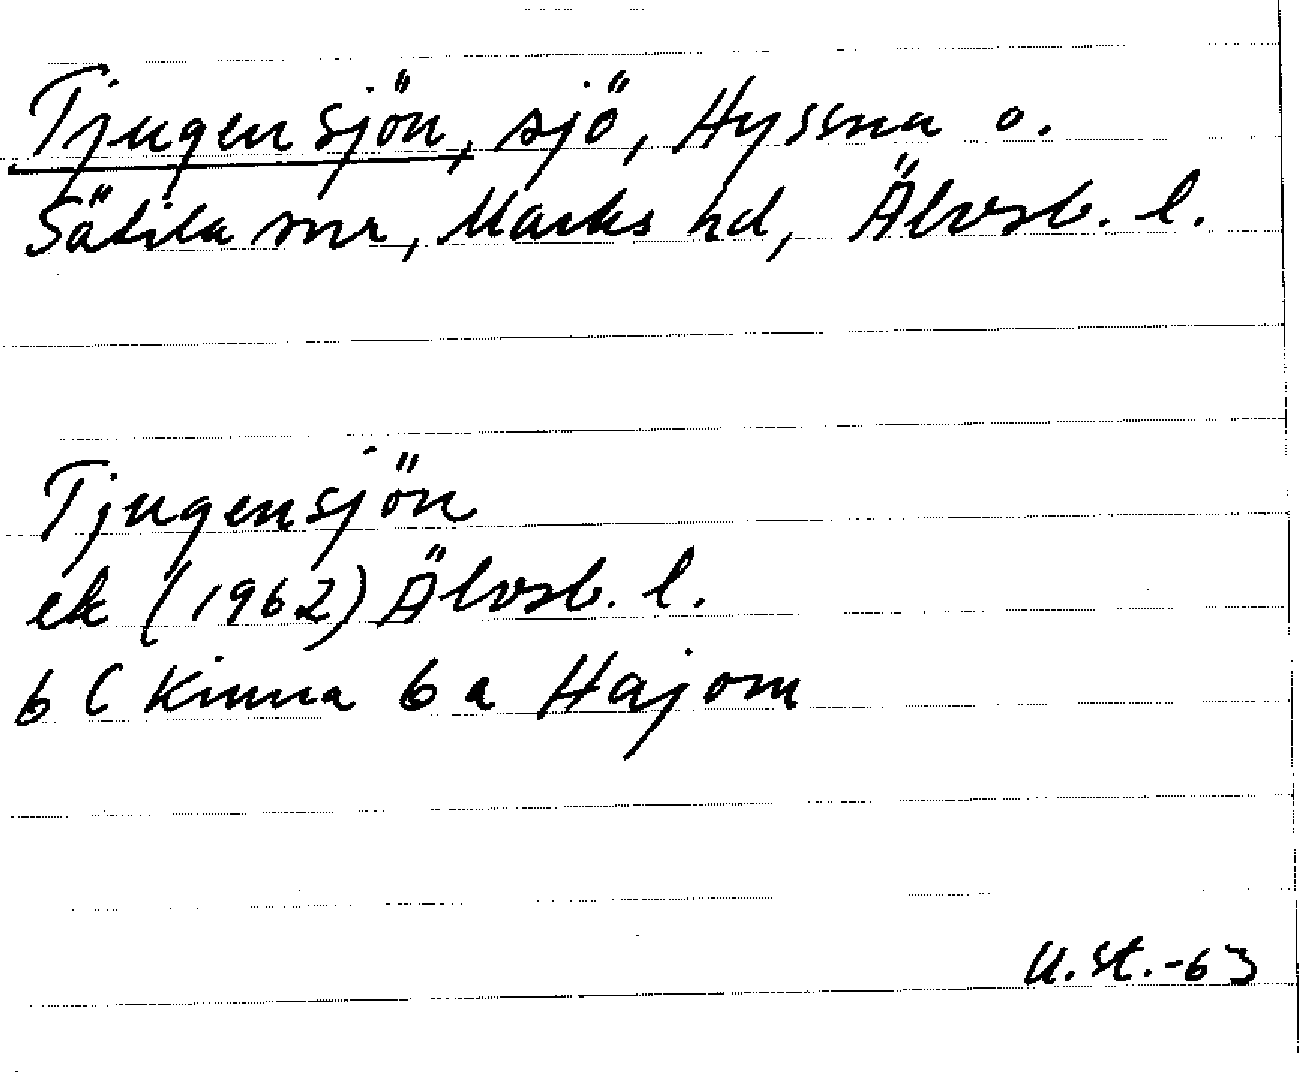 Tjugensjön, sjö, Hyssna o.
Sätila snr, Marks hd, Älvsb. l.
Tjugensjön
ek (1962) Älvsb. l.
6 C Kinna 6 a Hajom
U. St. -63